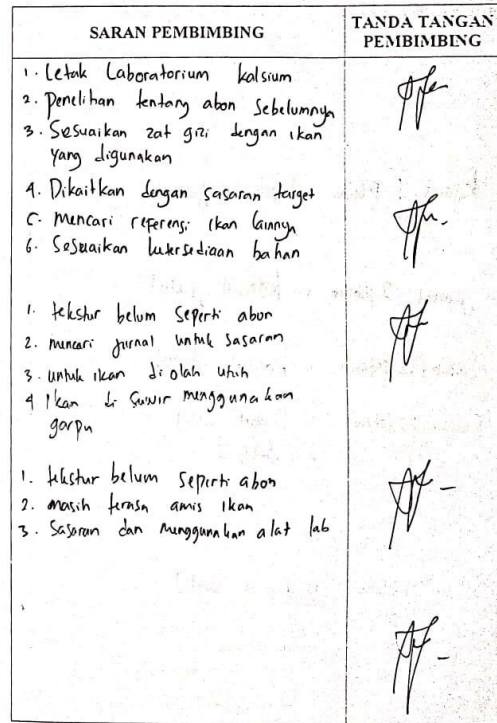 SARAN PEMBIMBING
TANDA TANGAN
PEMBIMBING
1. Letak Laboratorium kalsium
2. Penelitian tentang abon Sebelumnya
3. Sesuaikan zat gizi dengan ikan
yang digunakan
4. Dikaitkan dengan sasaran target
5. Mencari referensi ikan lainnya
6. Sesuaikan ketersediaan bahan
1. tekstur belum Seperti abon
2. mencari jurnal untuk sasaran
3. untuk ikan di olah utuh
4 Ikan di Suwir menggunakan
garpu
1. tekstur belum Seperti abon
2. masih terasa amis ikan
3. Sasaran dan menggunakan alat lab